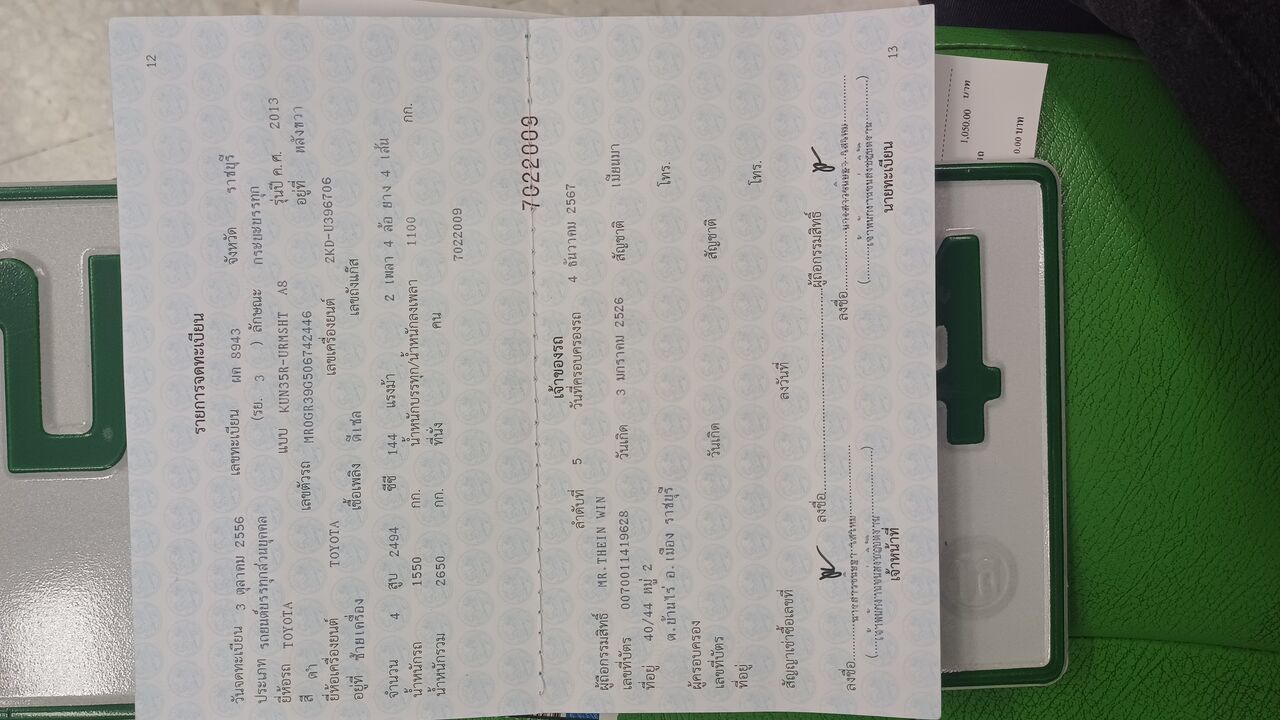 12
รายการจดทะเบียน
วันจดทะเบียน 3 ตุลาคม 2556 เลขทะเบียน ผค 8943 จังหวัด ราชบุรี
ประเภท รถยนต์บรรทุกส่วนบุคคล (รย. 3 ) ลักษณะ กระบะบรรทุก
ยี่ห้อรถ TOYOTA แบบ KUN35R-URMSHT A8 รุ่นปี ค.ศ. 2013
สี ดำ เลขตัวรถ MR0GR39G506742446 อยู่ที่ หลังขวา
ยี่ห้อเครื่องยนต์ TOYOTA เลขเครื่องยนต์ 2KD-U396706
อยู่ที่ ซ้ายเครื่อง เชื้อเพลิง ดีเซล เลขถังแก๊ส
จำนวน 4 สูบ 2494 ซีซี 144 แรงม้า 2 เพลา 4 ล้อ ยาง 4 เส้น
น้ำหนักรถ 1550 กก. น้ำหนักบรรทุก/น้ำหนักลงเพลา 1100 กก.
น้ำหนักรวม 2650 กก. ที่นั่ง คน
7022009
7022009
เจ้าของรถ
ลำดับที่ 5 วันที่ครอบครองรถ 4 ธันวาคม 2567
ผู้ถือกรรมสิทธิ์ MR.THEIN WIN
เลขที่บัตร 0070011419628 วันเกิด 3 มกราคม 2526 สัญชาติ เมียนมา
ที่อยู่ 40/44 หมู่ 2 โทร.
ต.บ้านไร่ อ.เมือง ราชบุรี
ผู้ครอบครอง
เลขที่บัตร วันเกิด สัญชาติ
ที่อยู่ โทร.
สัญญาเช่าซื้อเลขที่ ลงวันที่
ลงชื่อ ผู้ถือกรรมสิทธิ์
ลงชื่อ ลงชื่อ
(เจ้าพนักงานขนส่งชำนาญงาน) (เจ้าพนักงานขนส่งชำนาญงาน)
เจ้าหน้าที่ นายทะเบียน
13
1,050.00 บาท
0.00 บาท